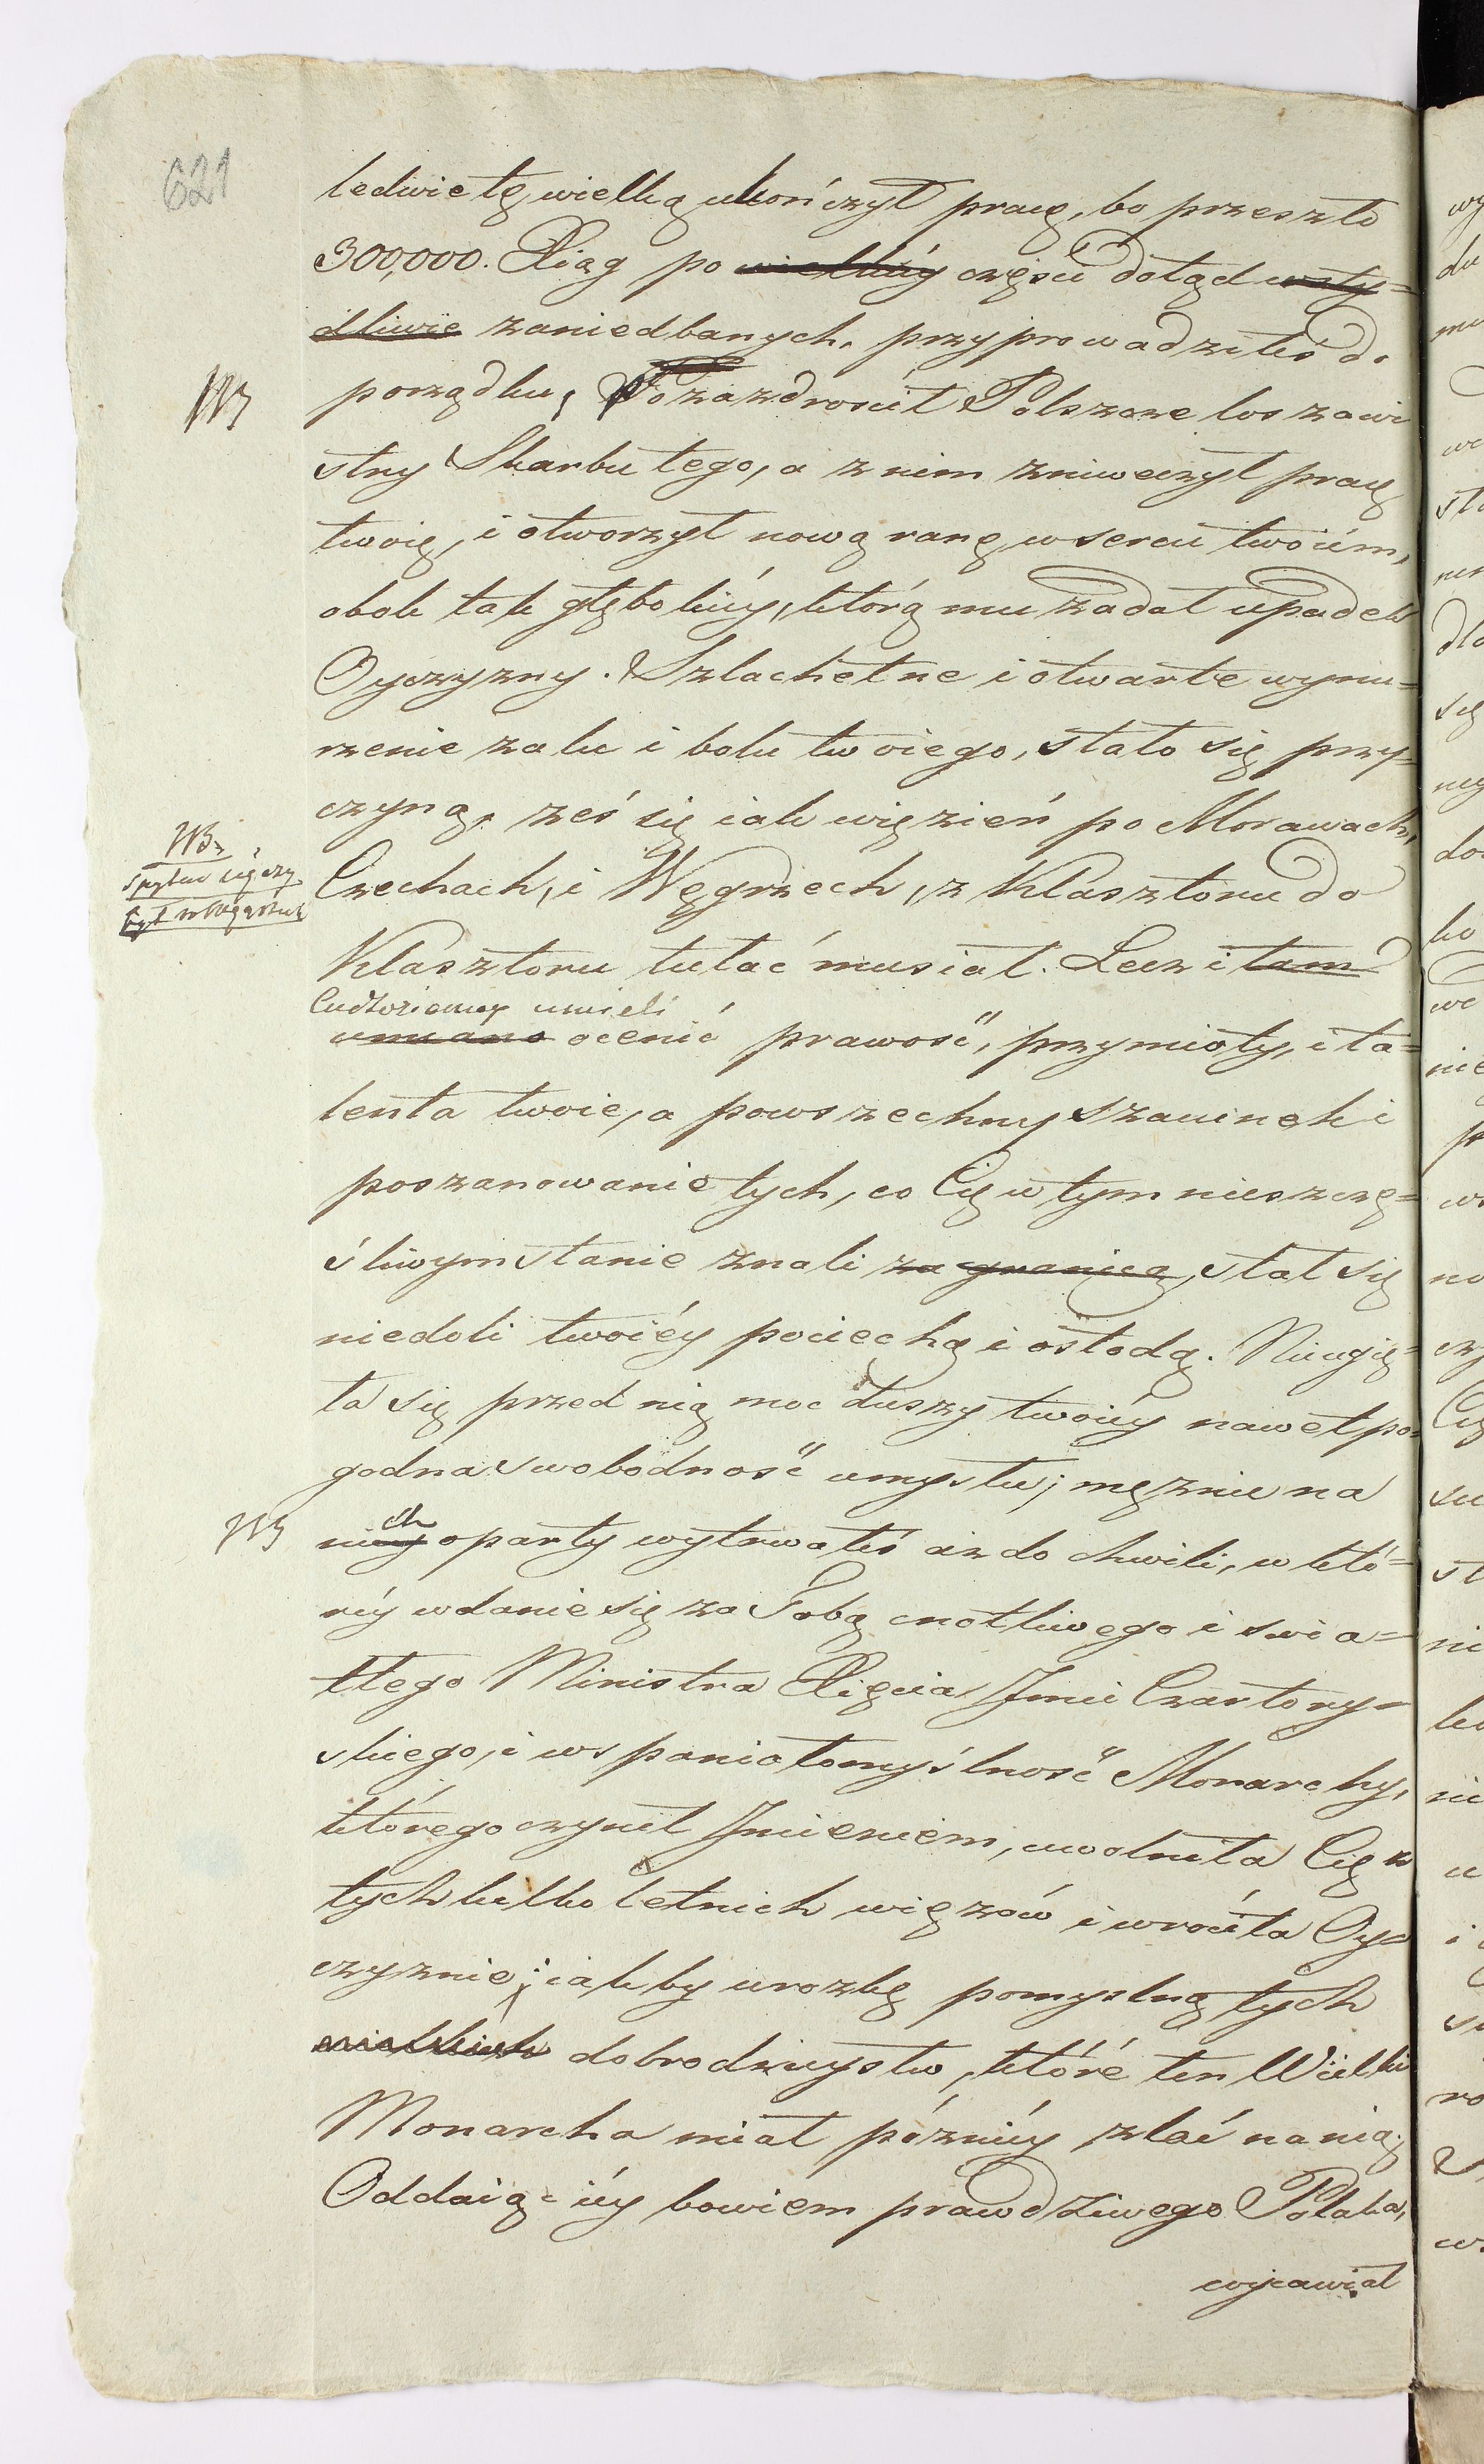 621
ledwie tę wielką ukończył pracę, bo przeszło
300,000. Xiąg po wielkiéy części dotąd wsty=
dliwie zaniedbanych, przyprowadziłeś do
NB
porządku, Pozazdrościł Polszcze los zawi
stny Skarbu tego, a z nim zniweczył pracę
twoię, i otworzył nową ranę w sercu twoiém,
obok tak głębokiéy, którą mu zadał upadek
Oyczyzny. Szlachetne i otwarte wynu=
rzenie żalu i bolu twoiego, stało się przy=
czyną, żeś się iak więzień po Morawach,
NB.
Spytać się czy
był w Węgrzech
Czechach, i Węgrzech, z Klasztoru do
Klasztoru tułać musiał. Lecz i tam
Cudzoziemcy umieli
umiano ocenić prawość, przymioty, i ta=
lenta twoie, a powszechny szacunek i
poszanowanie tych, co Cię w tym nieszczę=
śliwym stanie znali za granicą, stał się
niedoli twoiéy pociechą i osłodą. Nieugię=
ła się przed nią moc duszy twoiéy nawet po=
godna swobodność umysłu; mężnie na
NB
ch
niéy oparty wytrwałeś aż do chwili, w któ=
réy wdanie się za Tobą cnotliwego i świa=
tłego Ministra Xięcia Jmci Czartory=
skiego, i wspaniałomyślność Monarchy,
którego czynił Jmieniem, uwolniła Cię z
tych kilkoletnich więzów i wróciła Oy=
czyznie; iakby wrozbę pomyślną tych
wielkich dobrodzieystw, które ten Wielki
Monarcha miał późniéy zlać na nią;
Oddaiąc iéy bowiem prawdziwego Polaka,
wyiawiał